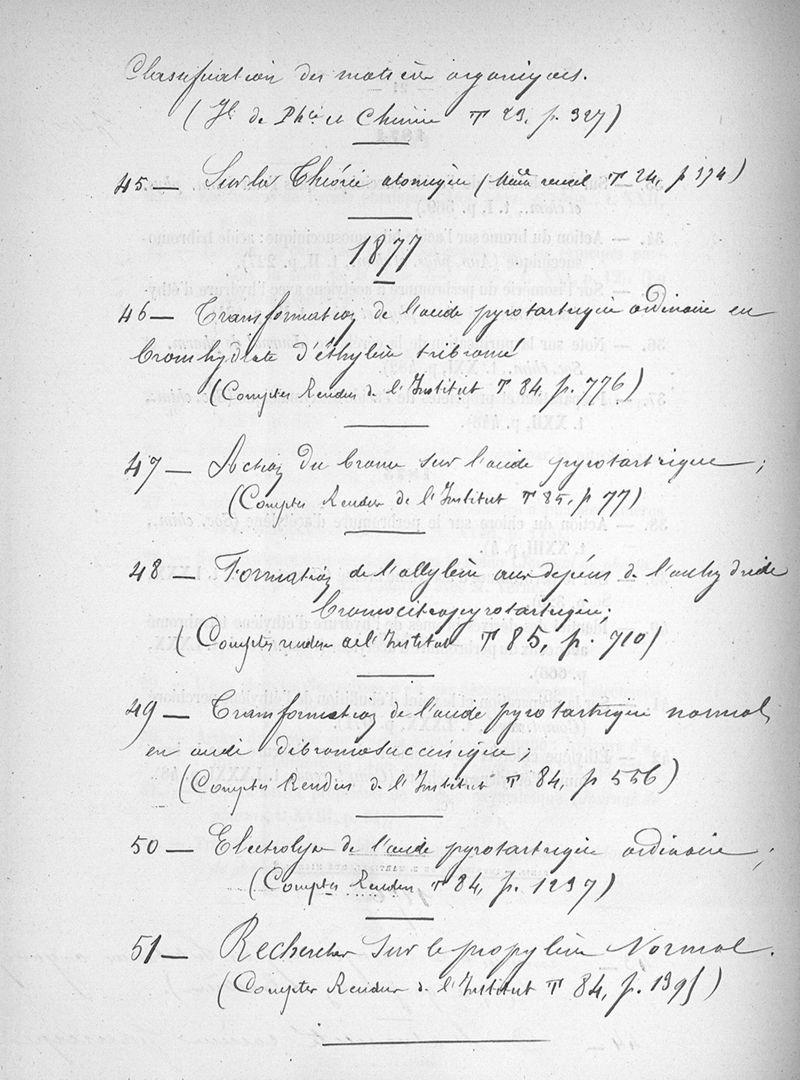 Classification des matières organiques.
(Jl de Phcie et Chimie T 23, p. 327)
45 — Sur la Théorie atomique (même recueil T 24, p 374)
1877
46 — Transformation de l'acide pyrotartrique ordinaire en
bromhydrate d'éthylène tribromé
(Comptes Rendus de l'Institut T 84, p. 776)
47 — Action du brome sur l'acide pyrotartrique ;
(Comptes Rendus de l'Institut T 85, p 77)
48 — Formation de l'allylène aux dépens de l'anhydride
bromocitrapyrotartrique.
(Comptes rendus de l'Institut T 85, p. 710)
49 — Transformation de l'acide pyrotartrique normal
en acide dibromosuccinique ;
(Comptes Rendus de l'Institut T 84, p 556)
50 — Electrolyse de l'acide pyrotartrique ordinaire ;
(Comptes Rendus T 84, p. 1237)
51 — Recherches sur le propylène Normal.
(Comptes Rendus de l'Institut T 84, p.)